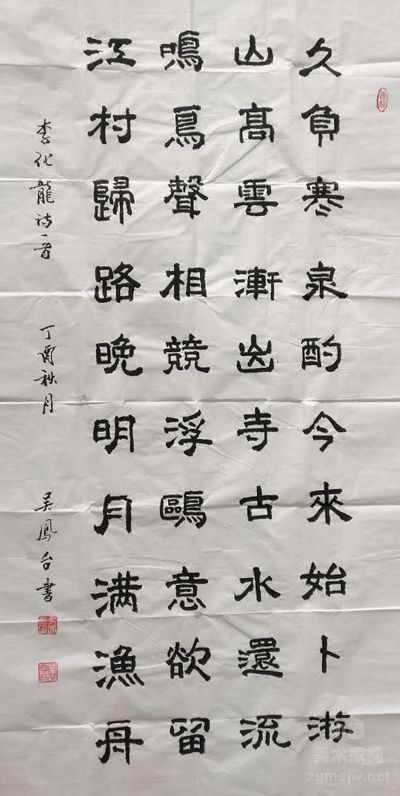 久負寒泉酌今來始卜游
山高雲漸出寺古水還流
鳴鳥聲相競浮鷗意欲留
江村歸路晚明月满漁舟
李化龍诗一首 丁酉秋月 吴鳳台書
美术家園
zgmsjw.net